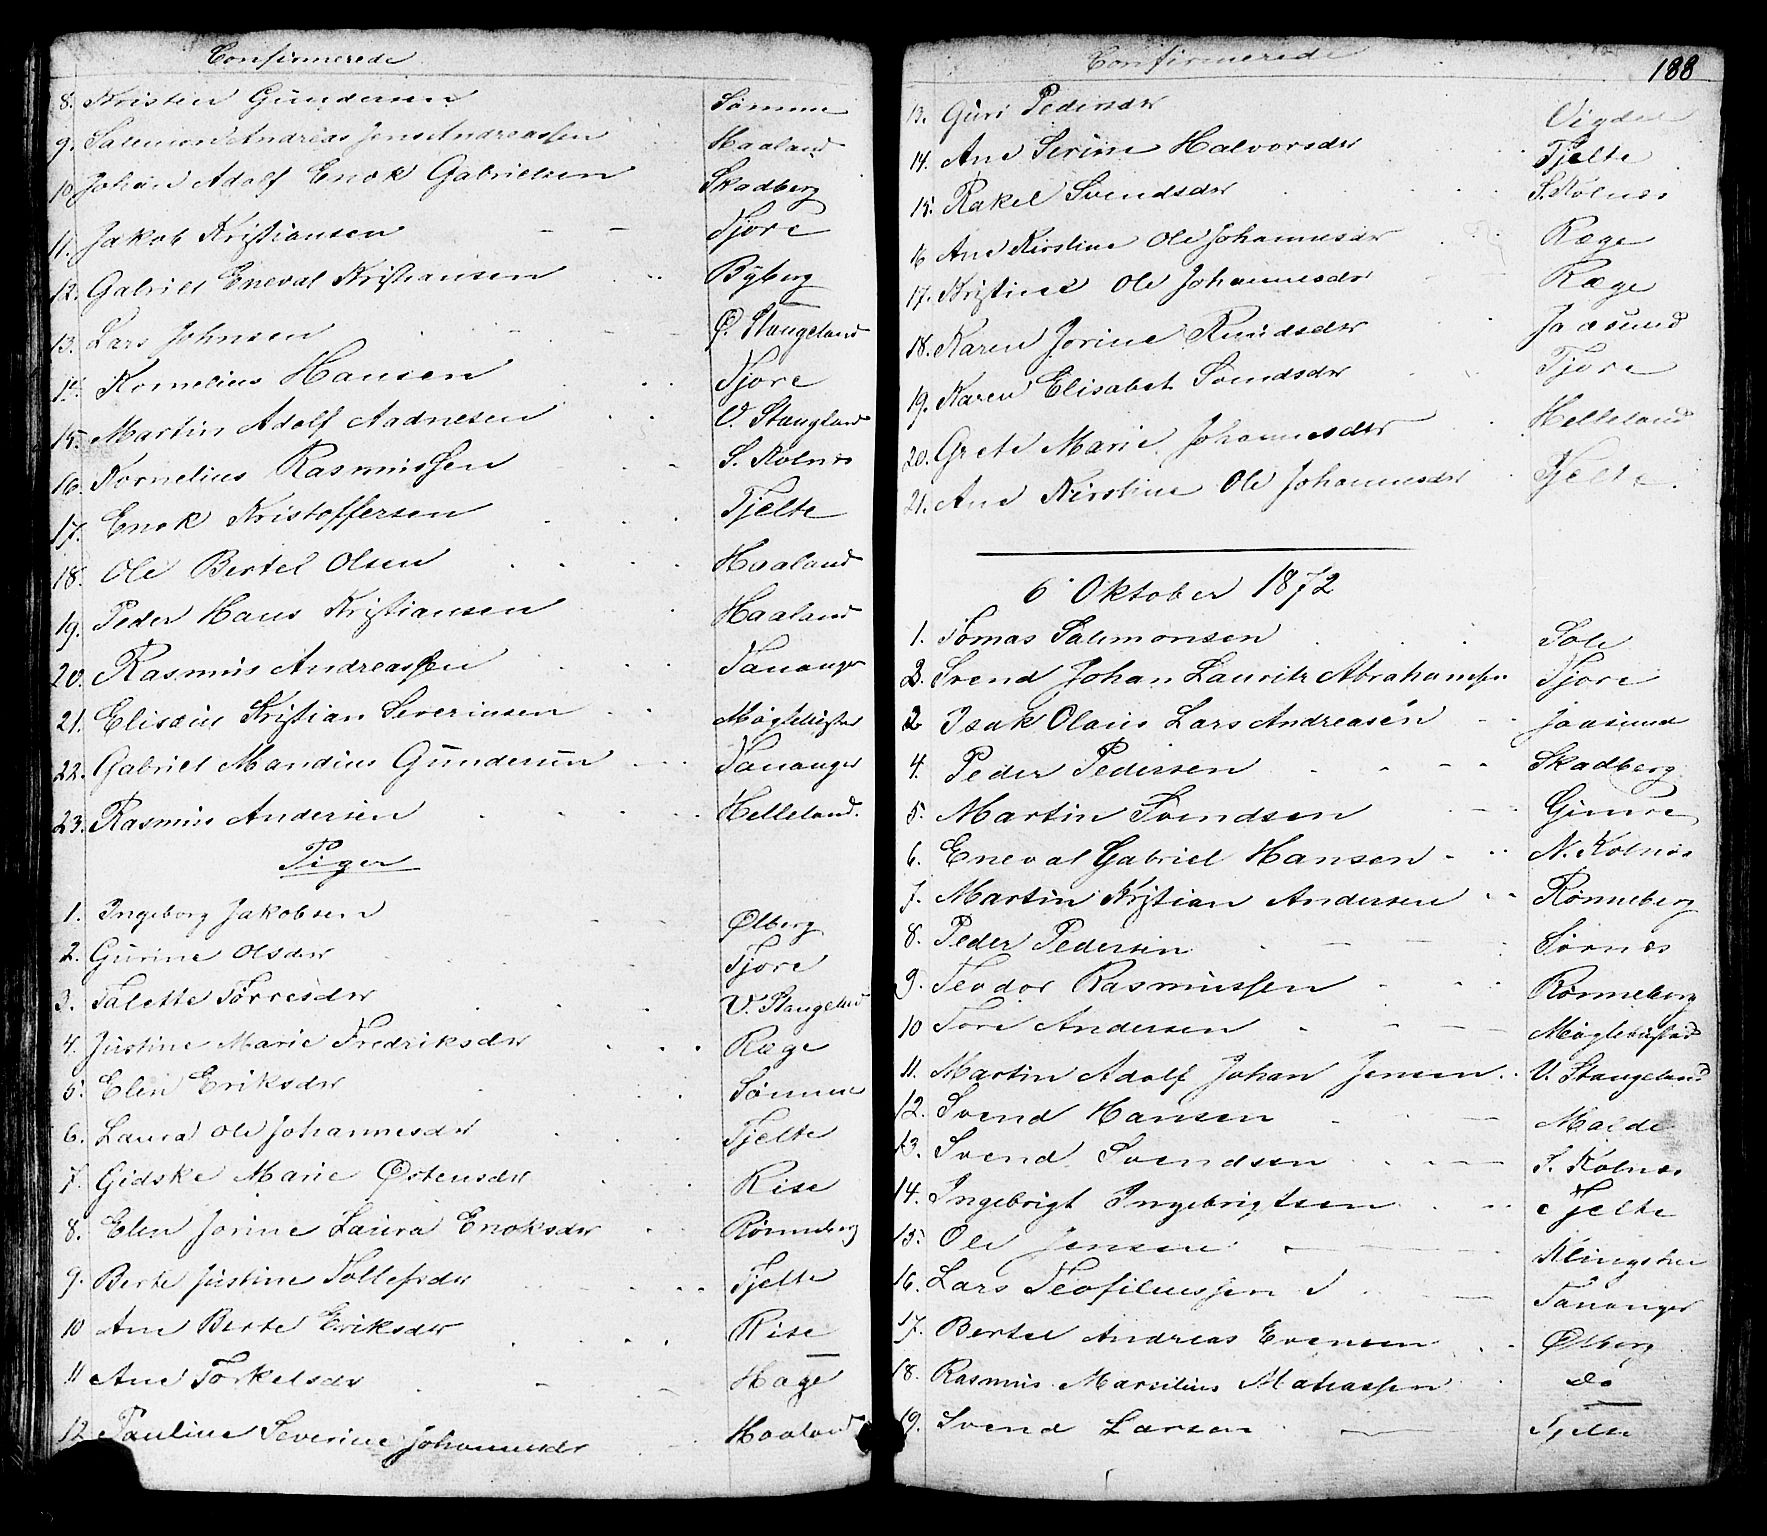 Confirmerede
8. Kristen Gundersen Sømme
9. Salemon Andreas Jens Andreassen Haaland
10. Johan Adolf Enok Gabrielsen Skadberg
11. Jakob Kristiansen Tjore
12. Gabriel Eneval Kristiansen Byberg
13. Lars Johnsen Ø. Stangeland
14. Kornelius Hansen Tjore
15. Martin Adolf Aadnesen V. Stangland
16. Kornelius Rasmussen S. Kolnes
17. Enok Kristoffersen Tjelte
18. Ole Bertel Olsen Haaland
19. Peder Hans Kristiansen Haaland
20. Rasmus Andreassen Tananger
21. Elisæus Kristian Severinsen
22. Gabriel Mandius Gundersen Tananger
23. Rasmus Andersen Helleland.
Piger
1. Ingeborg Jakobsen Ølberg
2. Gurine Olsdtr Tjore
3. Talette Torresdtr V. Stangeland
4. Justine Marie Fredriksdtr Ræge
5. Elen Eriksdtr Sømme
6. Laura Ole Johannesdtr Tjelte
7. Gidske Marie Østensdtr Rise
8. Elen Jorine Laura Enoksdtr Rønneberg
9. Berte Justine Tollefsdtr Tjelte
10 Ane Berte Eriksdtr Rise
11 Ane Torkelsdtr Hage
12 Pauline Severine Johannesdtr Haaland
Confirmerede 188
13. Guri Pedersdtr Vigdel
14. Ane Serine Halvorsdtr Tjelte
15. Rakel Svendsdtr S. Kolnes
16 Ane Kirstine Ole Johannesdtr Ræge
17. Kristine Ole Johannesdtr Ræge
18. Karen Jorine Knudsdtr Jaasund
19. Karen Elisabet Svendsdtr Tjore
20. Grete Marie Johannesdtr Helleland
21. Ane Kirstine Ole Johannesdtr Tjelte.
6 Oktober 1872
1. Tomas Salemonsen Sole
3. Svend Johan Lauritz Abrahamsen Tjore
2 Isak Olaus Lars Andreasen Jaasund
4. Peder Pedersen Skadberg
5. Martin Svendsen Gimre
6. Eneval Gabriel Hansen N. Kolnes
7. Martin Kristian Andersen Rønneberg
8. Peder Pedersen Sørnes
9. Teodor Rasmussen Rønneberg
10 Tore Andersen
11. Martin Adolf Johan Jensen V. Stangeland
12. Svend Hansen Malde
13. Svend Svendsen S. Kolnes
14. Ingebrigt Ingebrigtsen Tjelte
15. Ole Jensen
16. Lars Teofilussen Tananger
17. Bertel Andreas Evensen Ølberg
18. Rasmus Marselius Matiassen do
19. Svend Larsen Tjelte